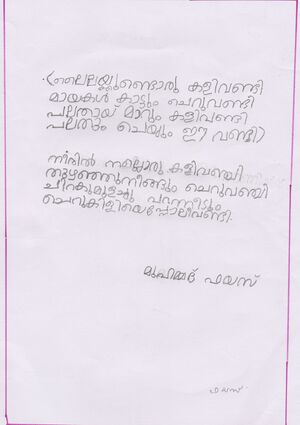 (ലൈലയ്ക്കുണ്ടൊരു കളിവണ്ടി
മായകൾ കാട്ടും ചെറുവണ്ടി
പലതായ് മാറും കളിവണ്ടി
പലതരം ചെയ്യും ഈ വണ്ടി)
നീരിൽ നല്ലൊരു കളിവഞ്ചി
തുഴഞ്ഞുനീങ്ങും ചെറുവഞ്ചി
ചിറകുമുളച്ചു പറന്നീടും
ചെറുകിളിയെപ്പോലീവണ്ടി.
മുഹമ്മദ് ഫയസ്
ഫയസ്